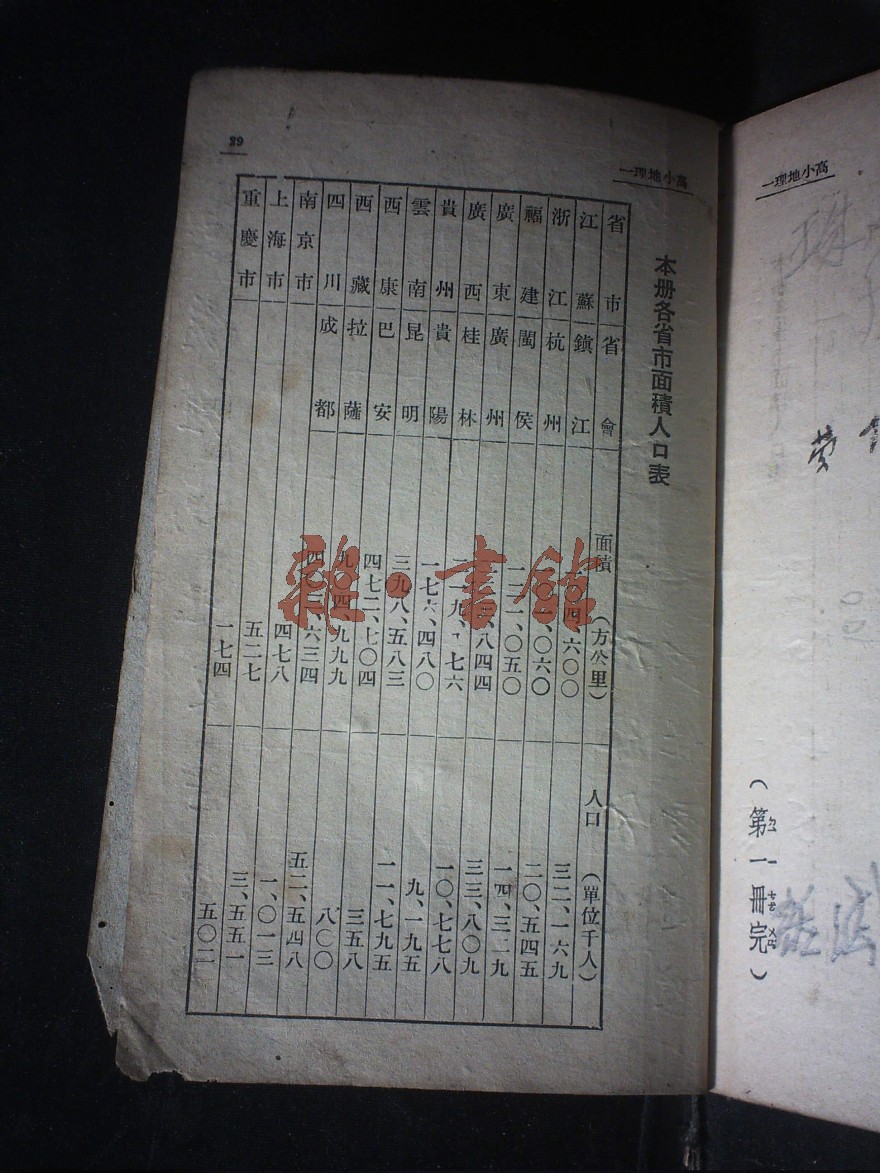 高小地理一
29
本册各省市面積人口表
省市 省會 面積(方公里) 人口(單位千人)
江蘇 鎮江 〇四、六〇〇 三二、一六九
浙江 杭州 〇一、〇六〇 二〇、五四五
福建 閩侯 一二一、〇五〇 一四、三二九
廣東 廣州 、八四四 三三、八〇九
廣西 桂林 二一九、七六 一〇、七七八
貴州 貴陽 一七六、四八〇 九、一九五
雲南 昆明 三九八、五八三 一一、七九五
西康 巴安 四七二、七〇四 三五八
西藏 拉薩 九〇四、九九九 八〇〇
四川 成都 四〇三、六三四 五二、五四八
南京市 四七八 一、〇一三
上海市 五二七 三、五五一
重慶市 一七四 五〇二
雜·書館
高小地理一
(第一冊完)